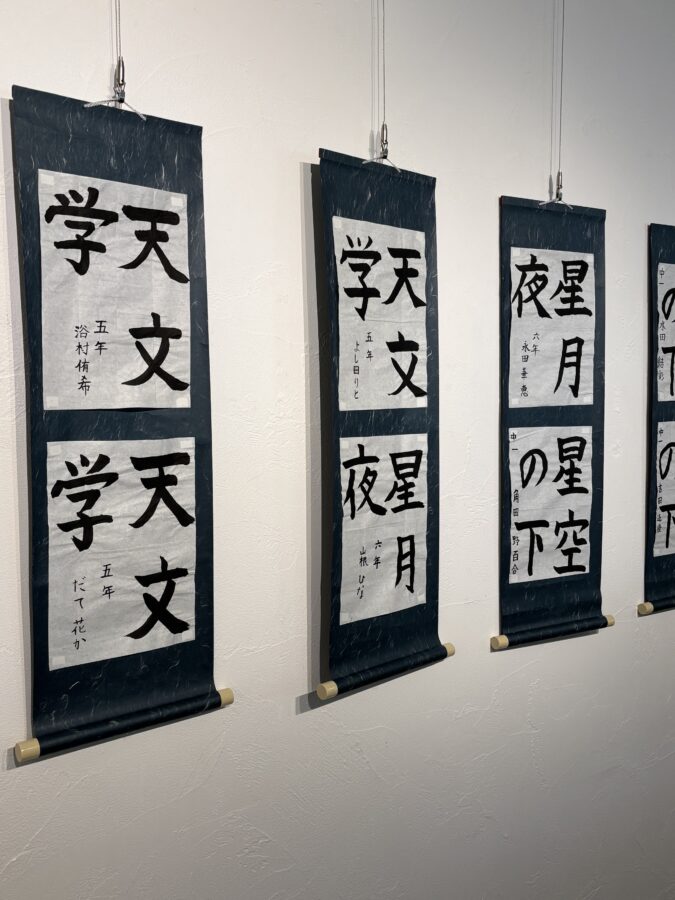 天文
学
五年
浴村侑希
天文
学
五年
だて花か
天文
学
五年
よし田りと
星月
夜
六年
山根ひな
星月
夜
六年
永田
星空
の下
中一 角田野百合
の下
中一
の下
中一 吉田